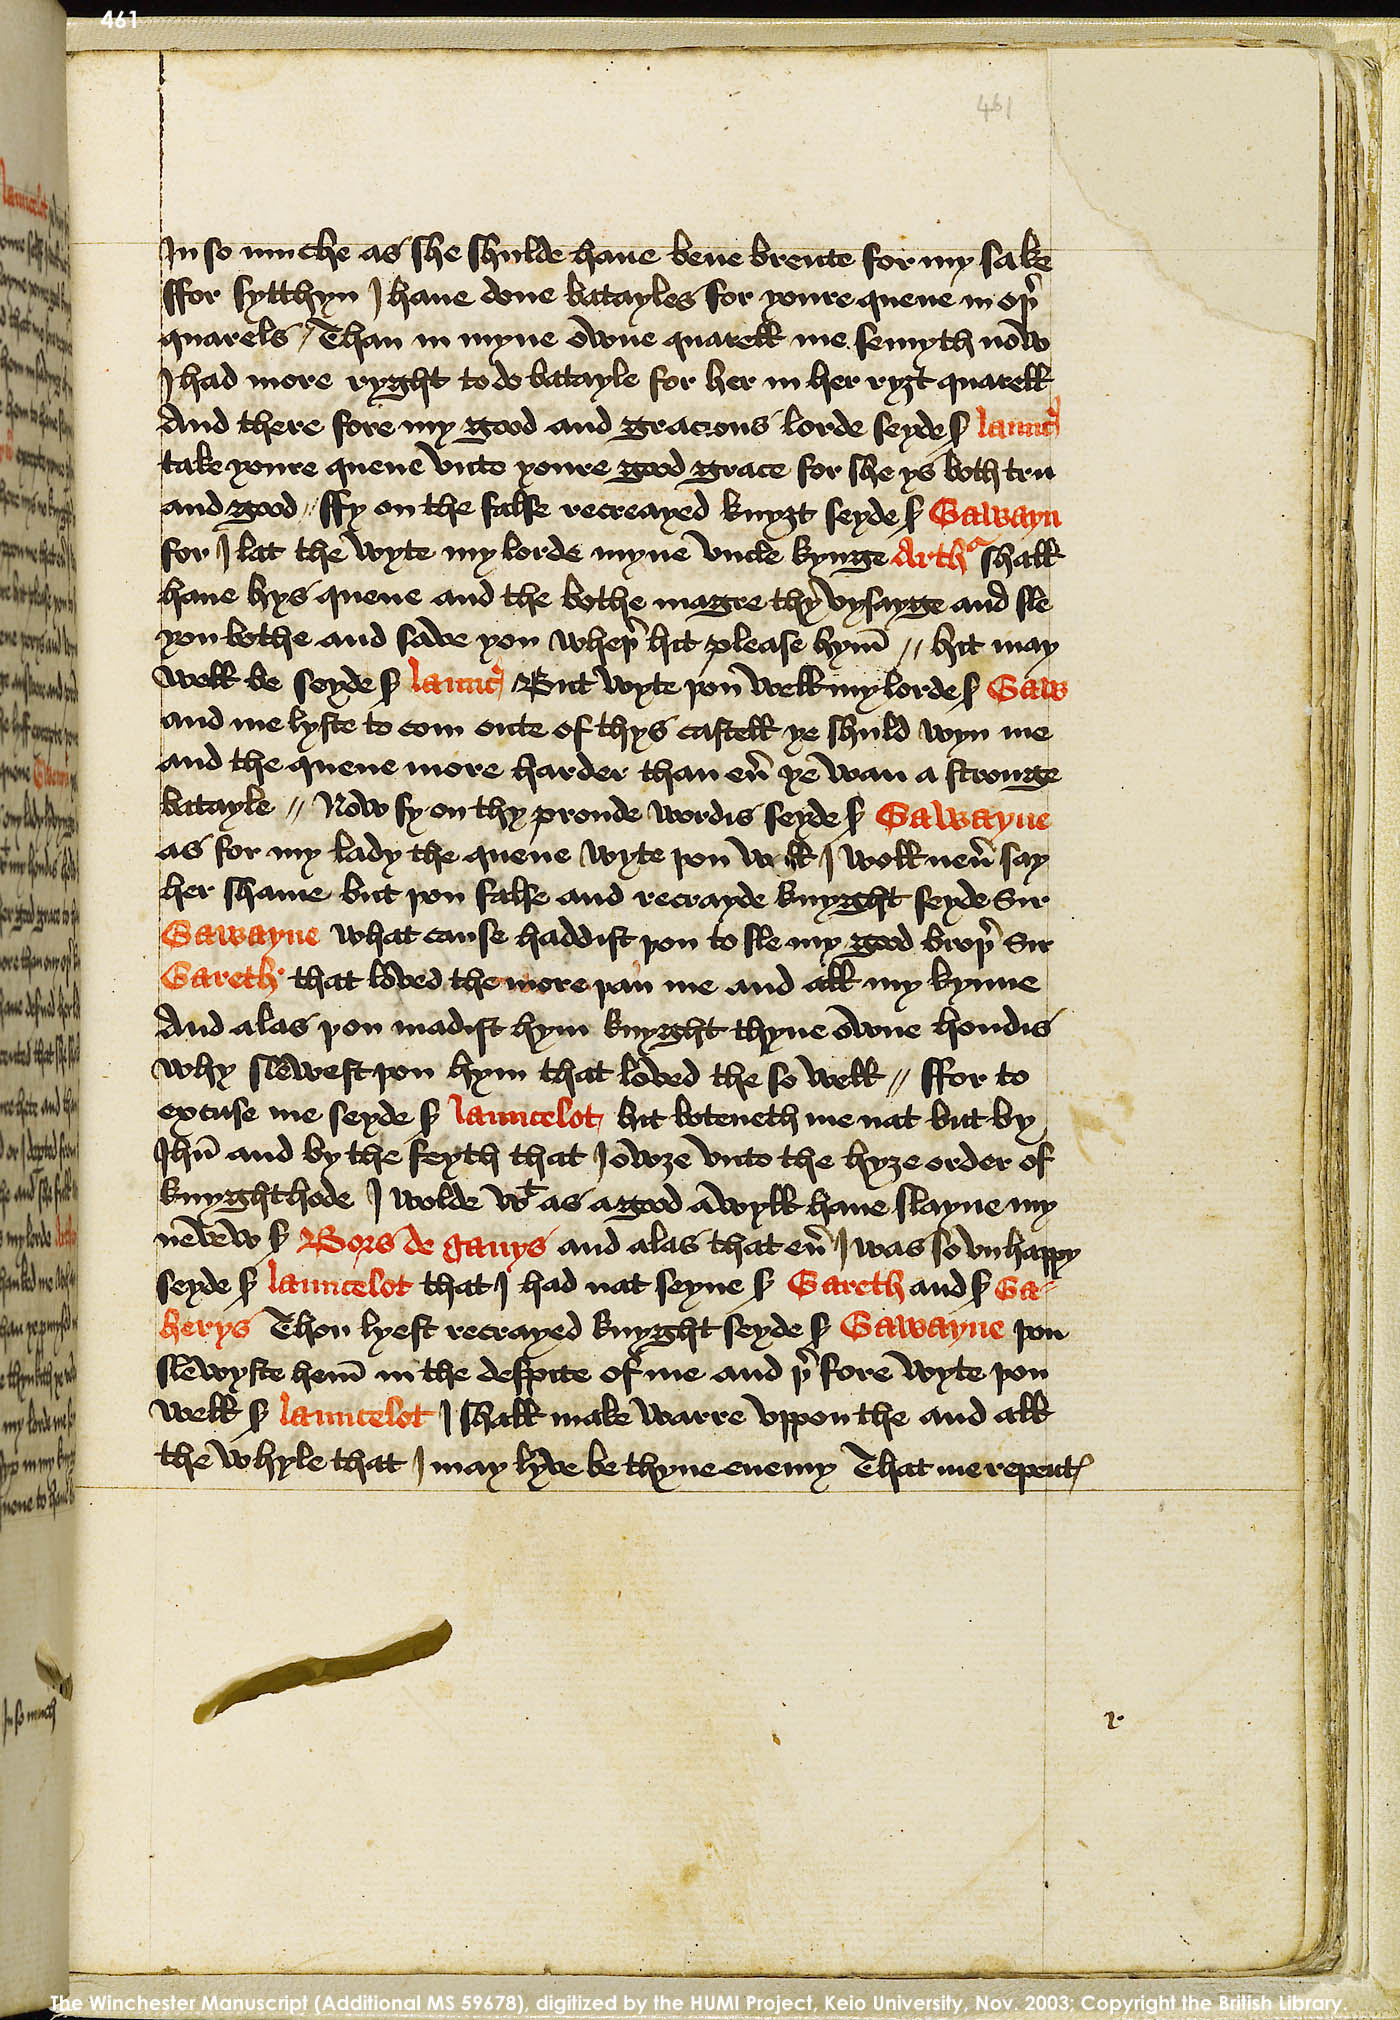 461
461
In so muche as she shulde haue bene brente for my sake
ffor sytthyn I haue done batayles for youre quene in oþ̉
quarels // Than in myne owne quarell me semyth now
I had more ryght to do batayle for her in her ryȝt quarell
And there fore my good and gracious lorde seyde ẜ launcꝭ
take youre quene vnto youre good grace for she ys both tru
and good // ffy on the false recreayed knyȝt seyde ẜ Gawayn
for I lat the wyte my lorde myne vncle kynge Arthᵃ shall
haue hys quene and the bothe magre thy vysayge and sle
you bothe and saue you wheþ̉ hit please hym̄ // hit may
well be seyde ẜ launcꝭ But wyte þou well my lorde ẜ Gaw
and me lyste to com oute of thys castell ye shuld wyn me
and the quene more harder than eủ ye wan a stronge
batayle // Now fy on thy proude wordis seyde ẜ Gawayne
as for my lady the quene wyte þou well I woll neủ say
her shame but þou false and recrayde knyght seyde Sir
Gawayne what cause haddist þou to sle my good broþ̉ Sir
Gareth that loved the more þan me and all my kynne
And alas þou madist hym knyght thyne owne hondis
why slewest þou hym that loved the so well // ffor to
excuse me seyde ẜ launcelot hit boteneth me nat but by
Ihū and by the feyth that I owȝe vnto the hyȝe order of
knyghthode I wolde wᵗ as a good a wyll haue slayne my
nevew ẜ Bors de ganys and alas that eủ I was so vnhappy
seyde ẜ launcelot that I had nat seyne ẜ Gareth and ẜ Ga-
herys Thou lyest recrayed knyght seyde ẜ Gawayne þou
slewyste hem̄ in the despite of me and þ̉ fore wyte þou
well ẜ launcelot I shall make warre vppon the and all
the whyle that I may lyve be thyne enemy That me repentꝭ
In so much
The Winchester Manuscript (Additional MS 59678), digitized by the HUMI Project, Keio University, Nov. 2003; Copyright the British Library.